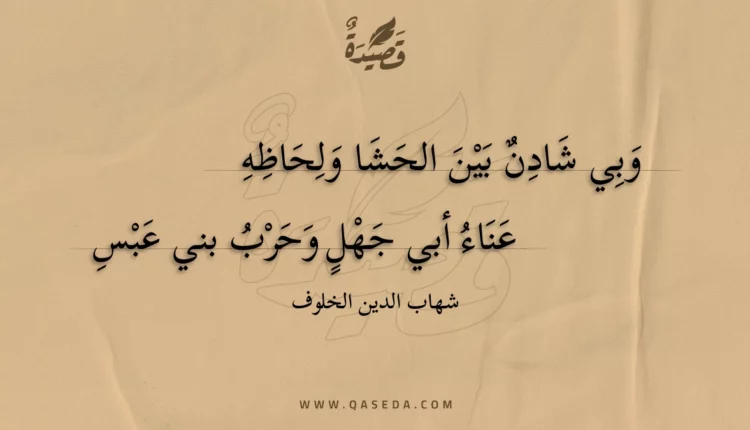 قَصِيدَةٌ
وَبِي شَادِنٌ بَيْنَ الحَشَا وَلِحَاظِهِ
عَنَاءُ أبي جَهْلٍ وَحَرْبُ بني عَبْسِ
شهاب الدين الخلوف
WWW.QASEDA.COM